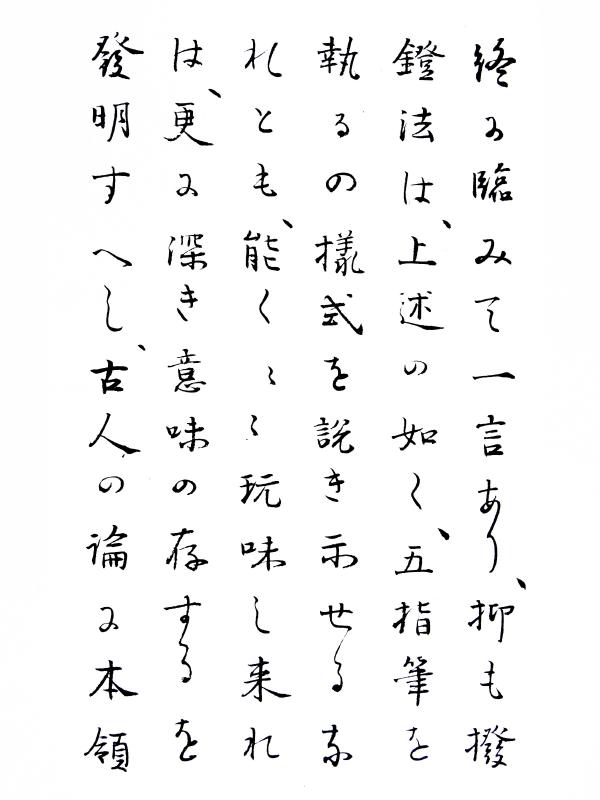 終に臨みて一言あり、抑も撥
鐙法は、上述の如く、五指筆を
執るの様式を説き示せるな
れとも、能くゝゝ玩味し来れ
は、更に深き意味の存するを
發明すへし、古人の論に本領